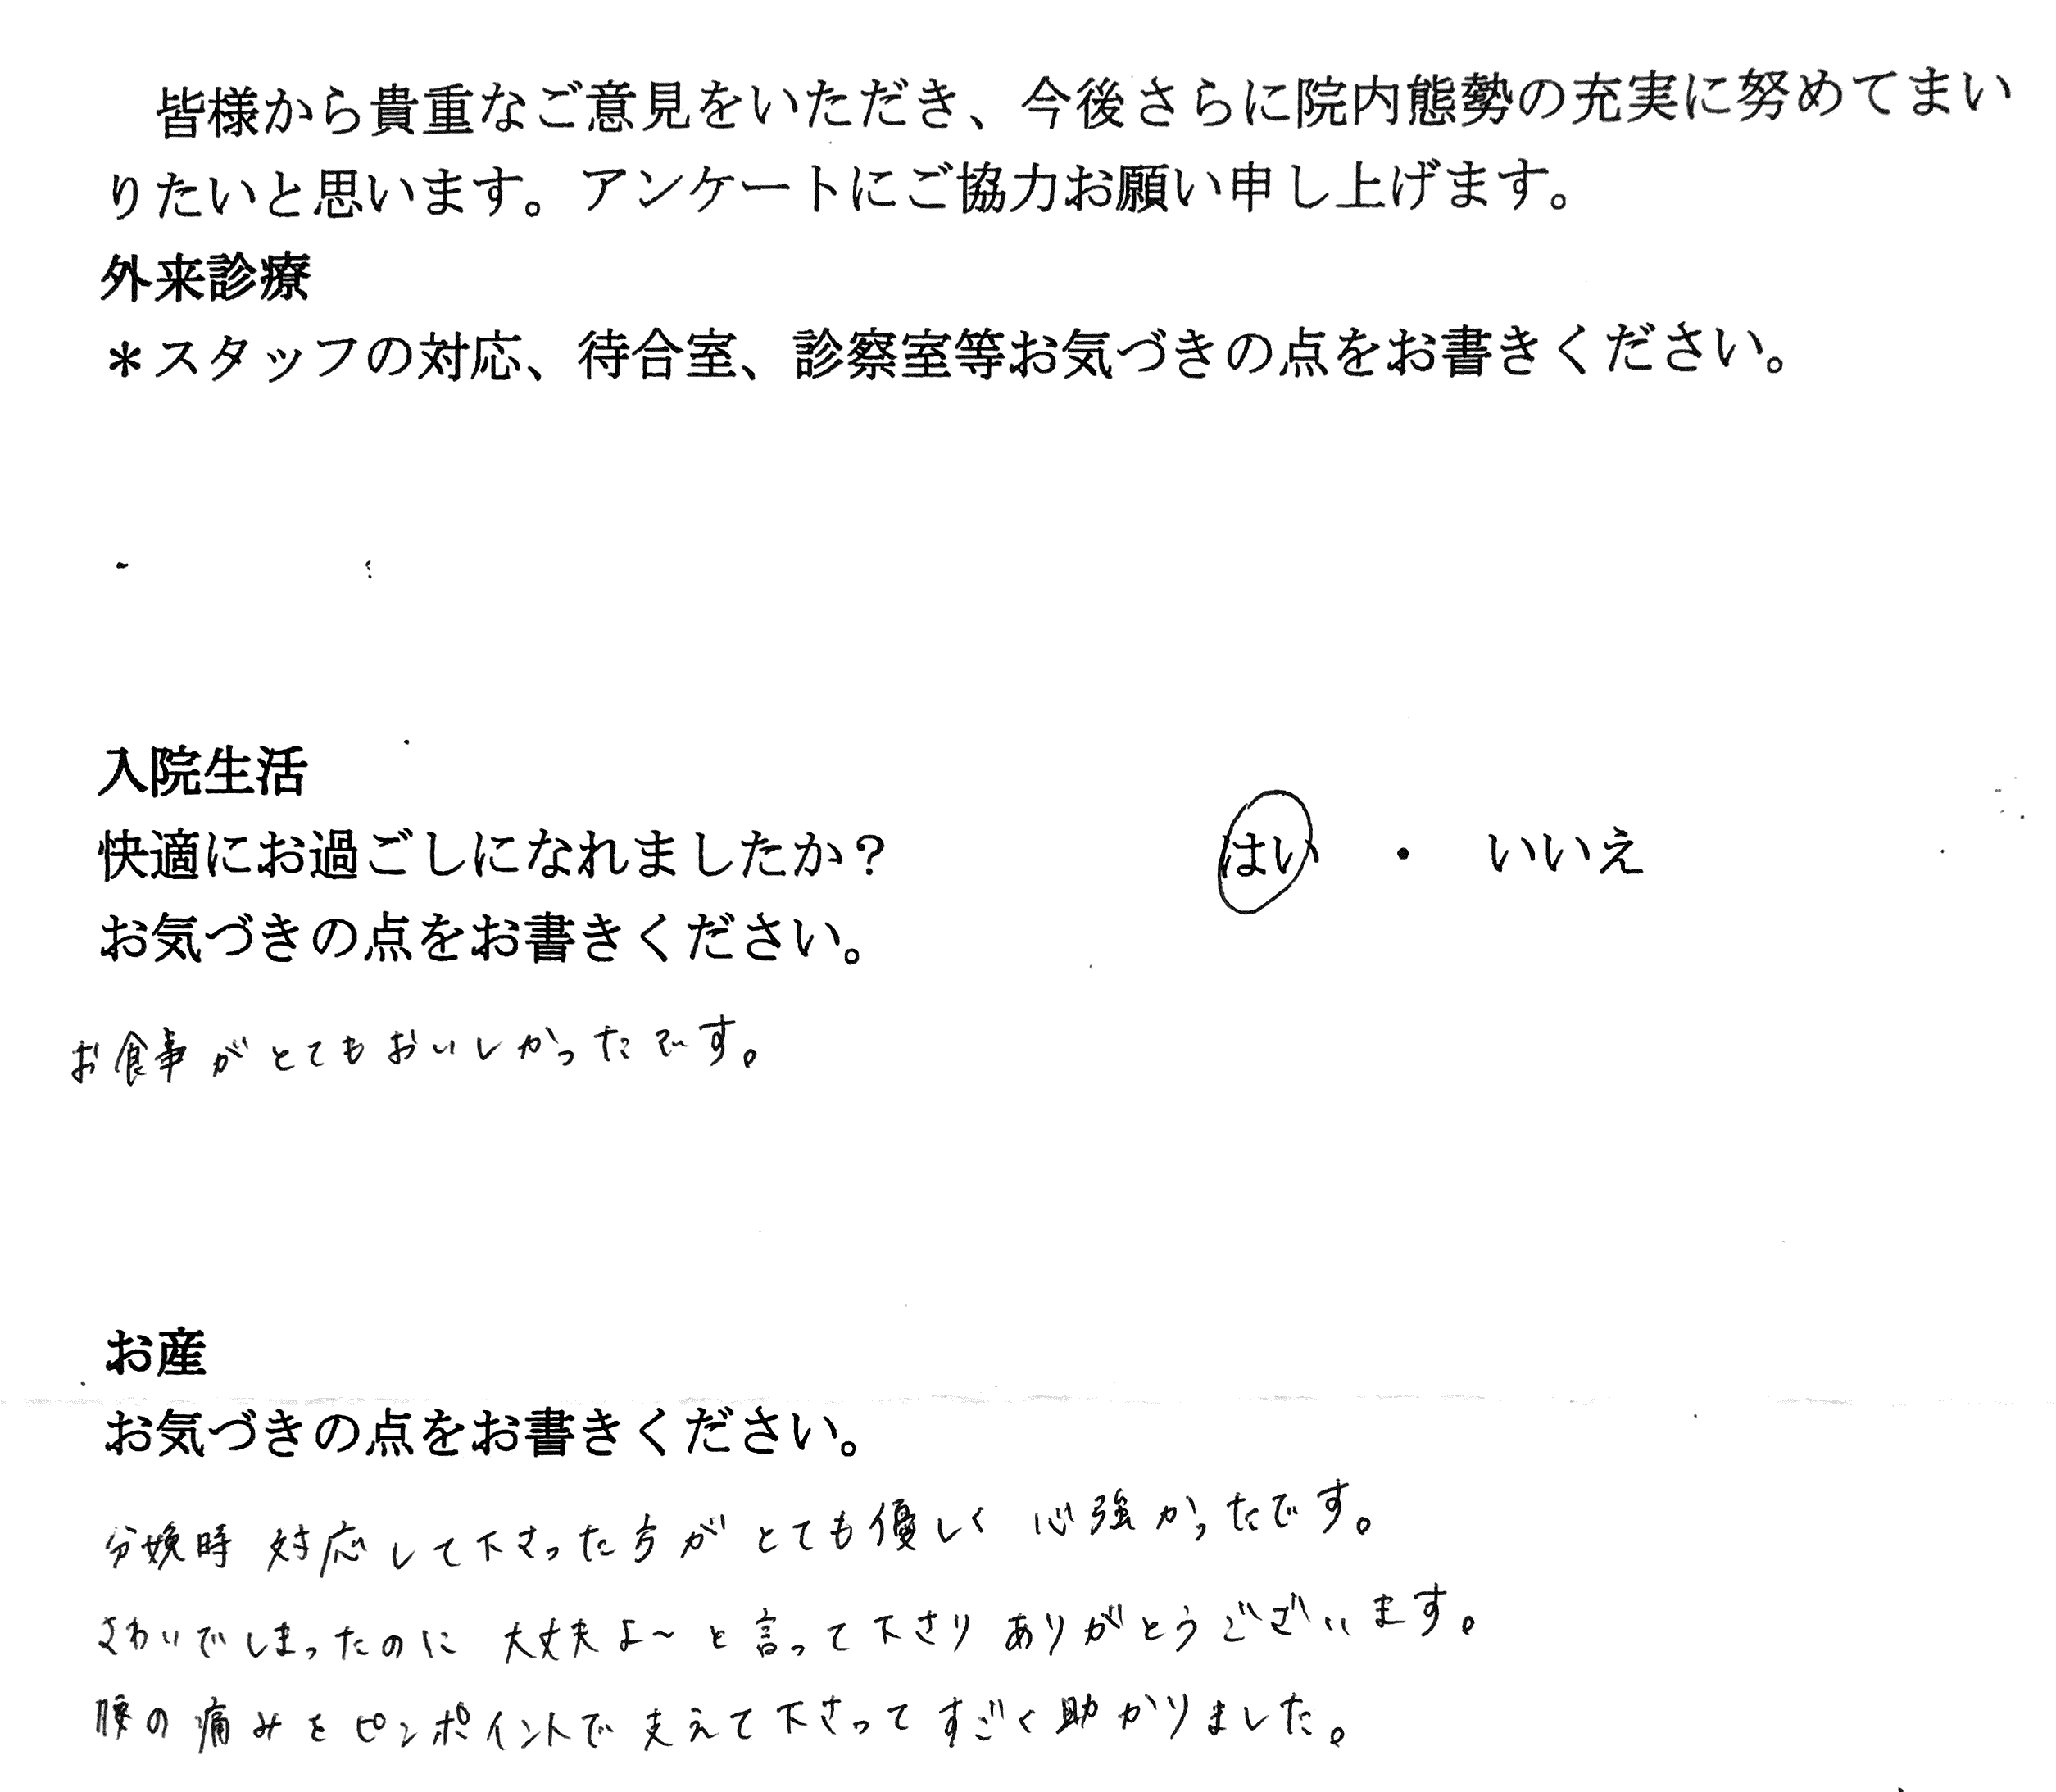 皆様から貴重なご意見をいただき、今後さらに院内態勢の充実に努めてまい
りたいと思います。アンケートにご協力お願い申し上げます。
外来診療
＊スタッフの対応、待合室、診察室等お気づきの点をお書きください。
入院生活
快適にお過ごしになれましたか？ はい ・ いいえ
お気づきの点をお書きください。
お食事がとてもおいしかったです。
お産
お気づきの点をお書きください。
分娩時 対応して下さった方がとても優しく 心強かったです。
さわいでしまったのに 大丈夫よ〜と言って下さり ありがとうございます。
腰の痛みをピンポイントで支えて下さってすごく助かりました。